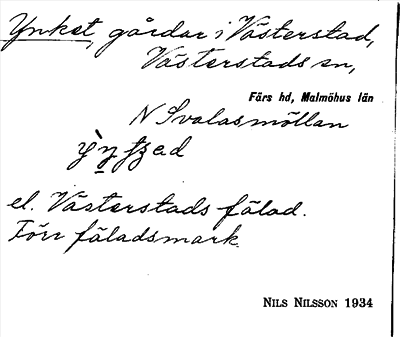 Ynket, gårdar i Västerstad,
Västerstads sn,
Färs hd, Malmöhus län
N Svalasmöllan
el. Västerstads fälad.
Förr fäladsmark.
NILS NILSSON 1934